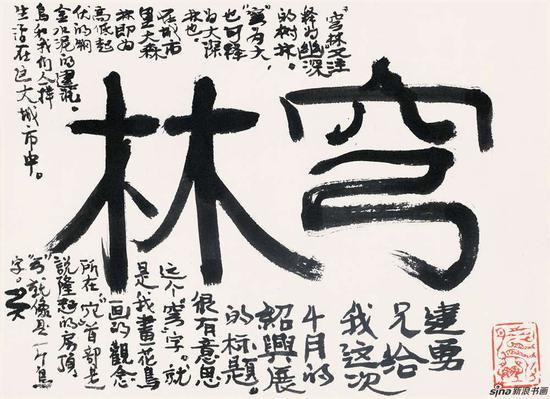 穹林
"穹林又注
释为幽深
的树林。
"穹"为大,
也可释
为大深
林也。
在城市
里大森
林即为
高低起
伏的钢
金水泥的建筑。
鸟和我们人一样
生活在这大城市中。
建勇
兄给
我这次
4月的
紹興展
的标题。
很有意思
这个"穹"字。就
是我畫花鳥
画的觀念
所在"穴"首部是
說隆起的房頂
"弓"就像是一个鸟
字。
sina 新浪书画